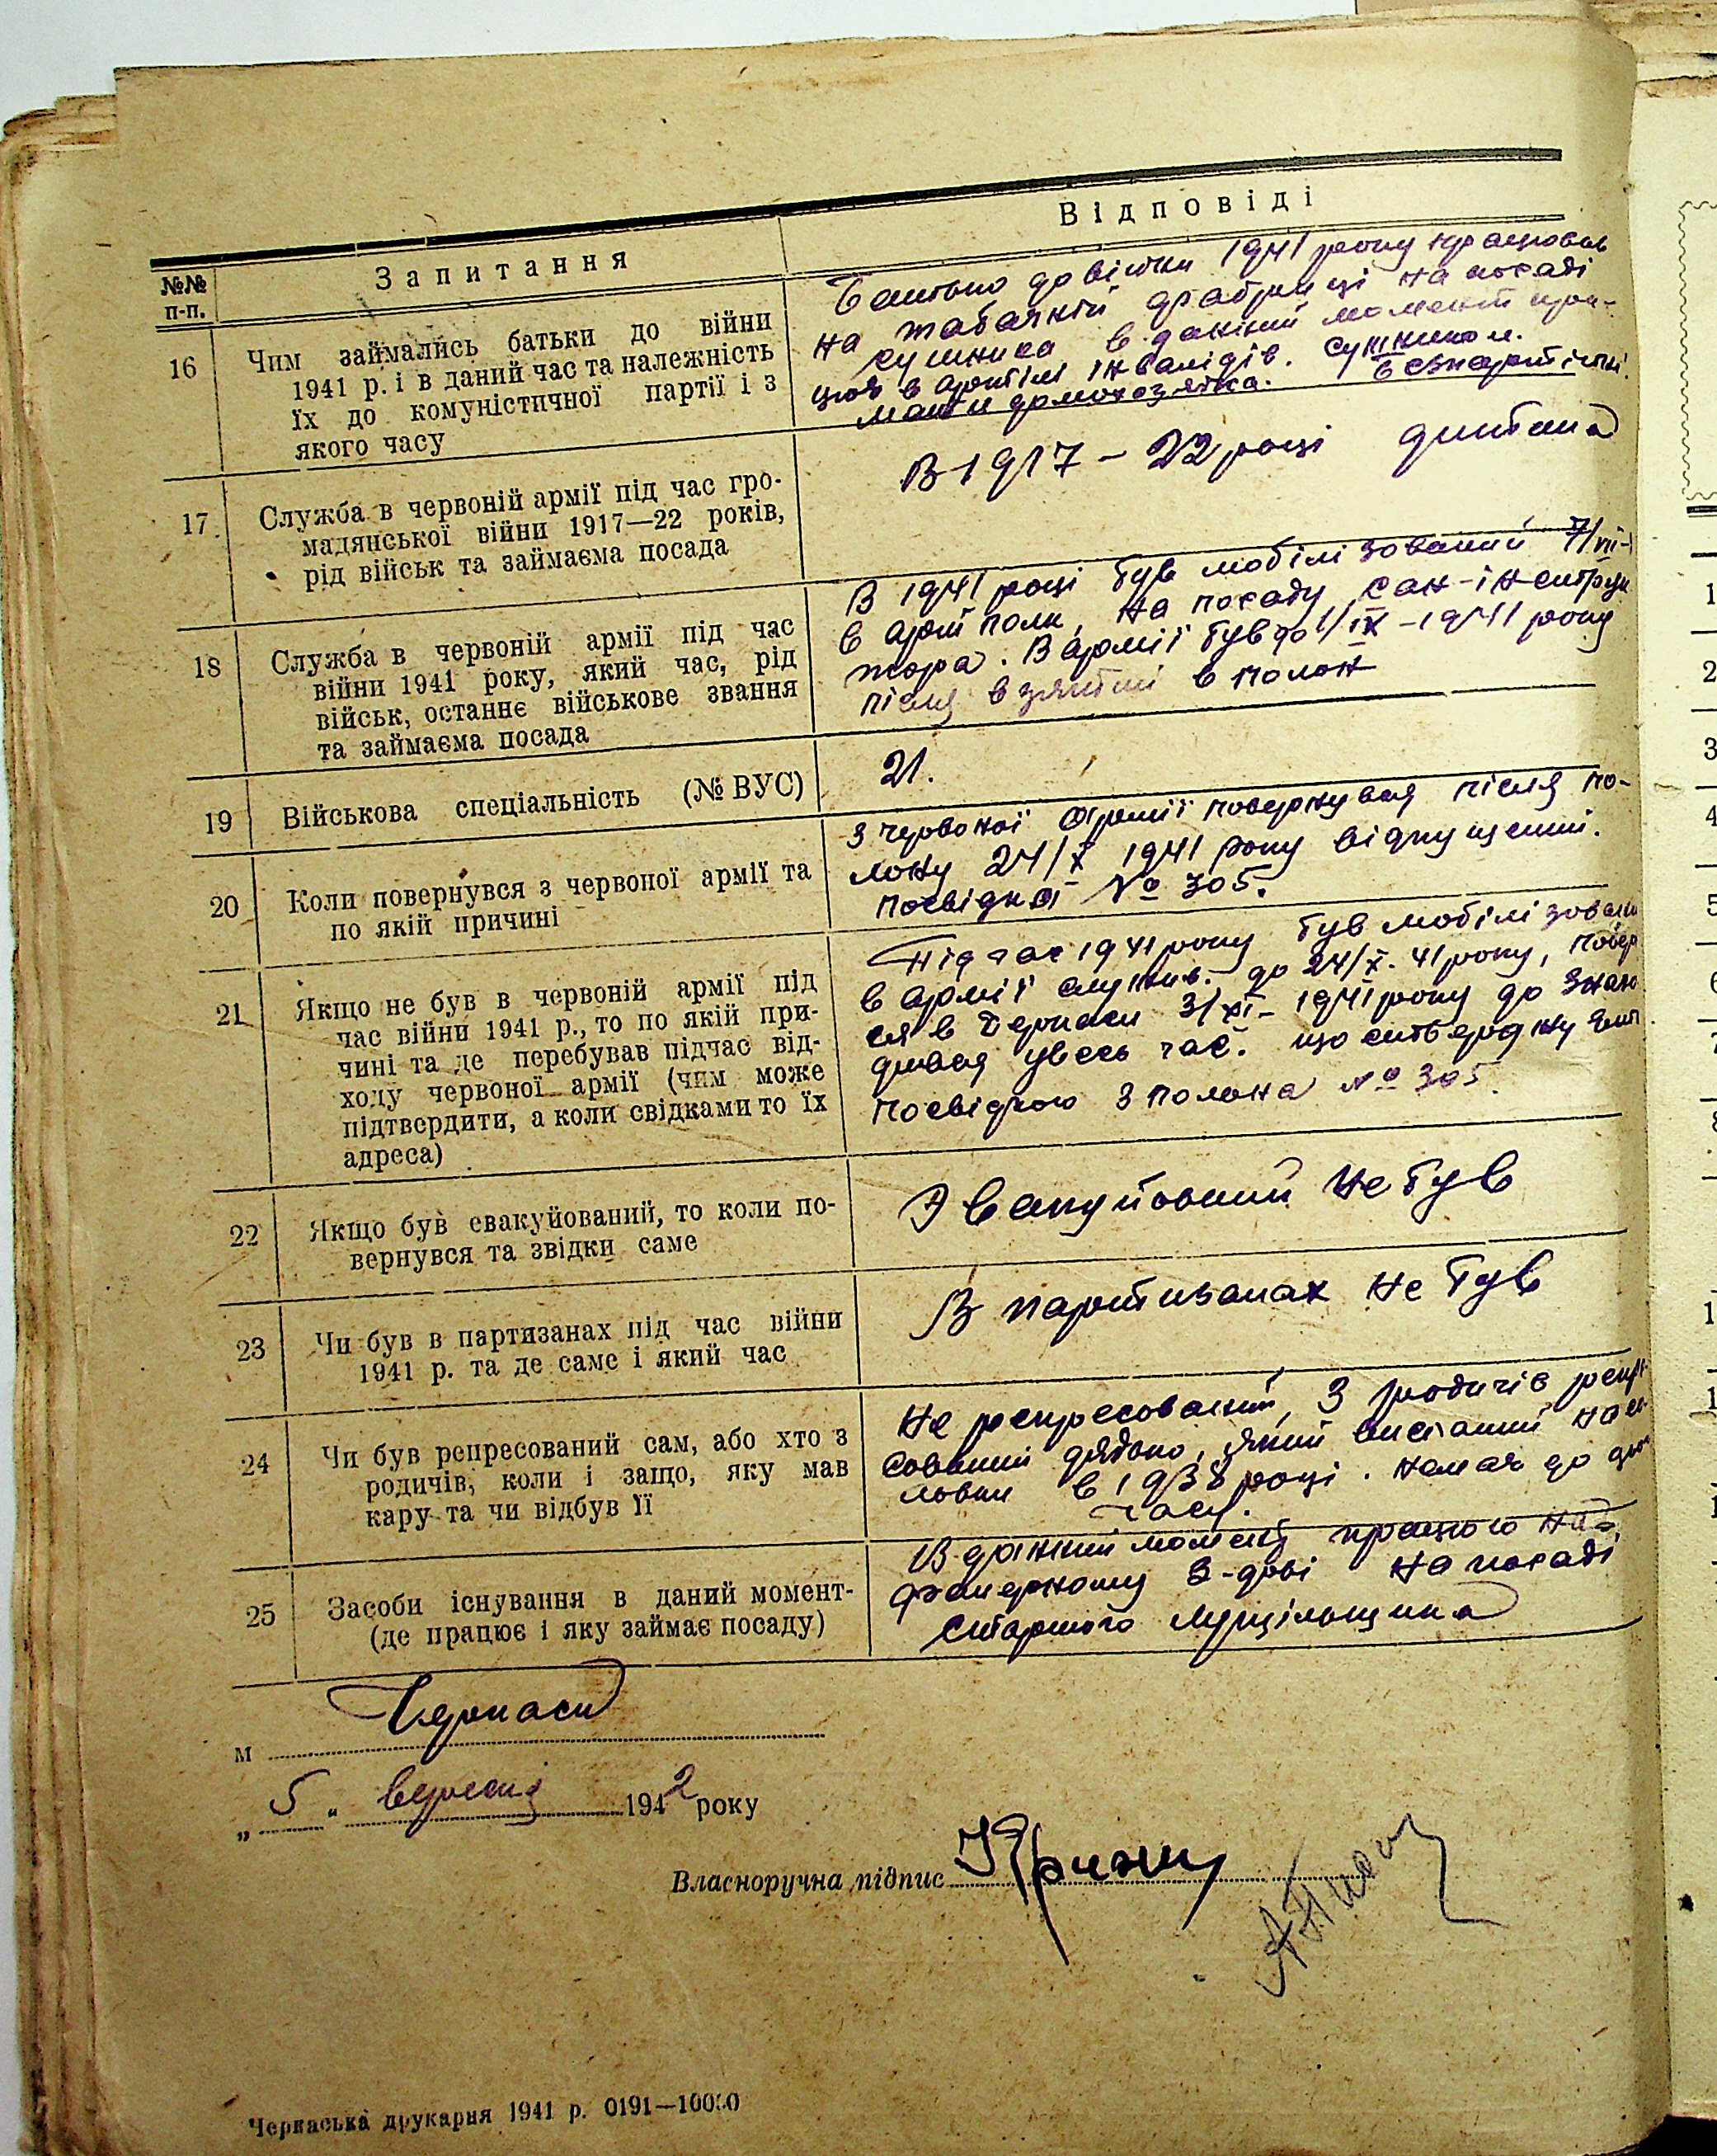 В і д п о в і д і
№№ п-п.
З а п и т а н н я
16
Чим займались батьки до війни
1941 р. і в даний час та належність
їх до комуністичної партії і з
якого часу
Батько до війни 1941 року працював
на табачній фабриці на посаді
сушника в даний момент пра-
цює в артілі інвалідів. сушником.
Мати домохозяйка. Безпартійні.
17
Служба в червоній армії під час гро-
мадянської війни 1917—22 років,
рід військ та займаєма посада
В 1917 – 22 році дитина
18
Служба в червоній армії під час
війни 1941 року, який час, рід
військ, останнє військове звання
та займаєма посада
В 1941 році був мобілізований 7/VII-
в арт полк, на посаду сан-інструк
тора. В армії був до 1/IX-1941 року
після взятті в полон
19
Військова спеціальність (№ ВУС)
21.
20
Коли повернувся з червоної армії та
по якій причині
З червоної армії повернувся після по-
лону 24/X 1941 року відпущений.
посвідка № 305.
21
Якщо не був в червоній армії під
час війни 1941 р., то по якій при-
чині та де перебував підчас від-
ходу червоної армії (чим може
підтвердити, а коли свідками то їх
адреса)
Під час 1941 року був мобілізован
в армії служив. до 24/X. 41 року, повер
ся в Черкаси 3/XI- 1941 року до
увесь час. що
посвідкою з полона № 305.
22
Якщо був евакуйований, то коли по-
вернувся та звідки саме
Эвакуйований не був
23
Чи був в партизанах під час війни
1941 р. та де саме і який час
В партизанах не був
24
Чи був репресований сам, або хто з
родичів, коли і защо, яку мав
кару та чи відбув її
Не репресований, З родичів репре
сований дядько, який висланий на со-
ловки в 1938 році. немає до цього
часу.
25
Засоби існування в даний момент-
(де працює і яку займає посаду)
В данний момент працюю на
фанерному з-дові на посаді
старшого лущільщика
м Черкаси
„ 5 „ вересня 1942 року
Власноручна підпис
Черкаська друкарня 1941 р. 0191—10000
1
2
3
4
5
6
7
8